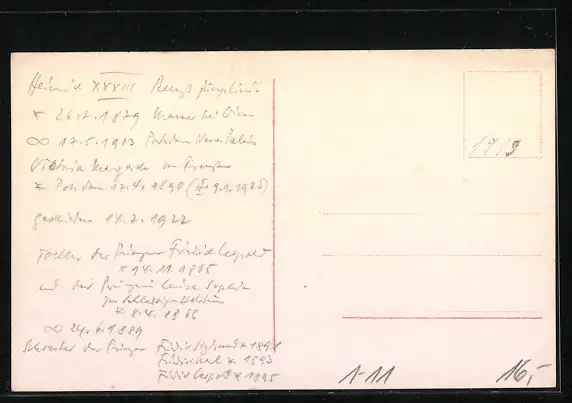 Heinrich XXXIII Reuß jüng. Linie
* 26.7.1879 Mauer bei Wien
∞ 17.5.1913 Potsdam Neues Palais
Viktoria Margarete von Preußen
* Potsdam 17.4.1890 († 9.9.1923)
geschieden 14.7.1922
Tochter des Prinzen Friedrich Leopold
* 14.11.1865
und der Prinzessin Louise Sophie
zu Schleswig-Holstein
* 8.4.1866
∞ 24.6.1889
Schwester der Prinzen Friedrich Sigismund * 1891
Friedrich Karl * 1893
Friedrich Leopold * 1895
1913
1-11
16,-